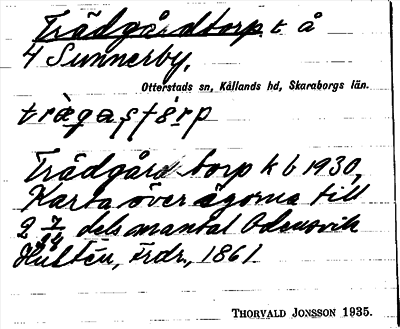 Trädgårdtorp t å
4 Sunnerby,
Otterstads sn, Kållands hd, Skaraborgs län.
Trädgårdtorp k b 1930,
Karta över ägorna till
2 dels mantal Odensvik
Hultén, ärdr, 1861.
THORVALD JONSSON 1935.